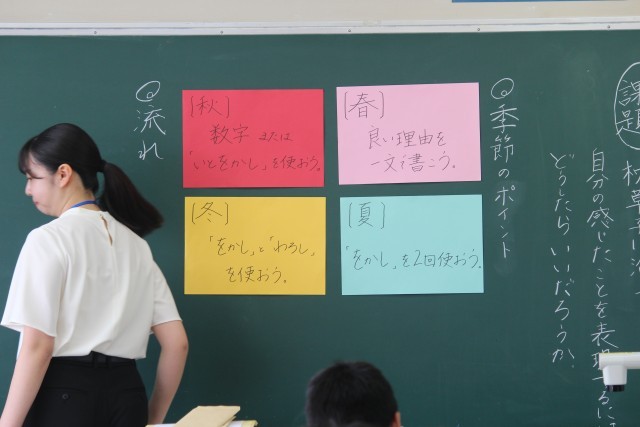 課題
枕草子に沿って
自分の感じたことを表現するには
どうしたらいいだろうか。
◎季節のポイント
[春]
良い理由を
一文で書こう。
[夏]
「をかし」を2回使おう。
[秋]
数字 または
「いとをかし」を使おう。
[冬]
「をかし」と「わろし」
を使おう。
◎流れ